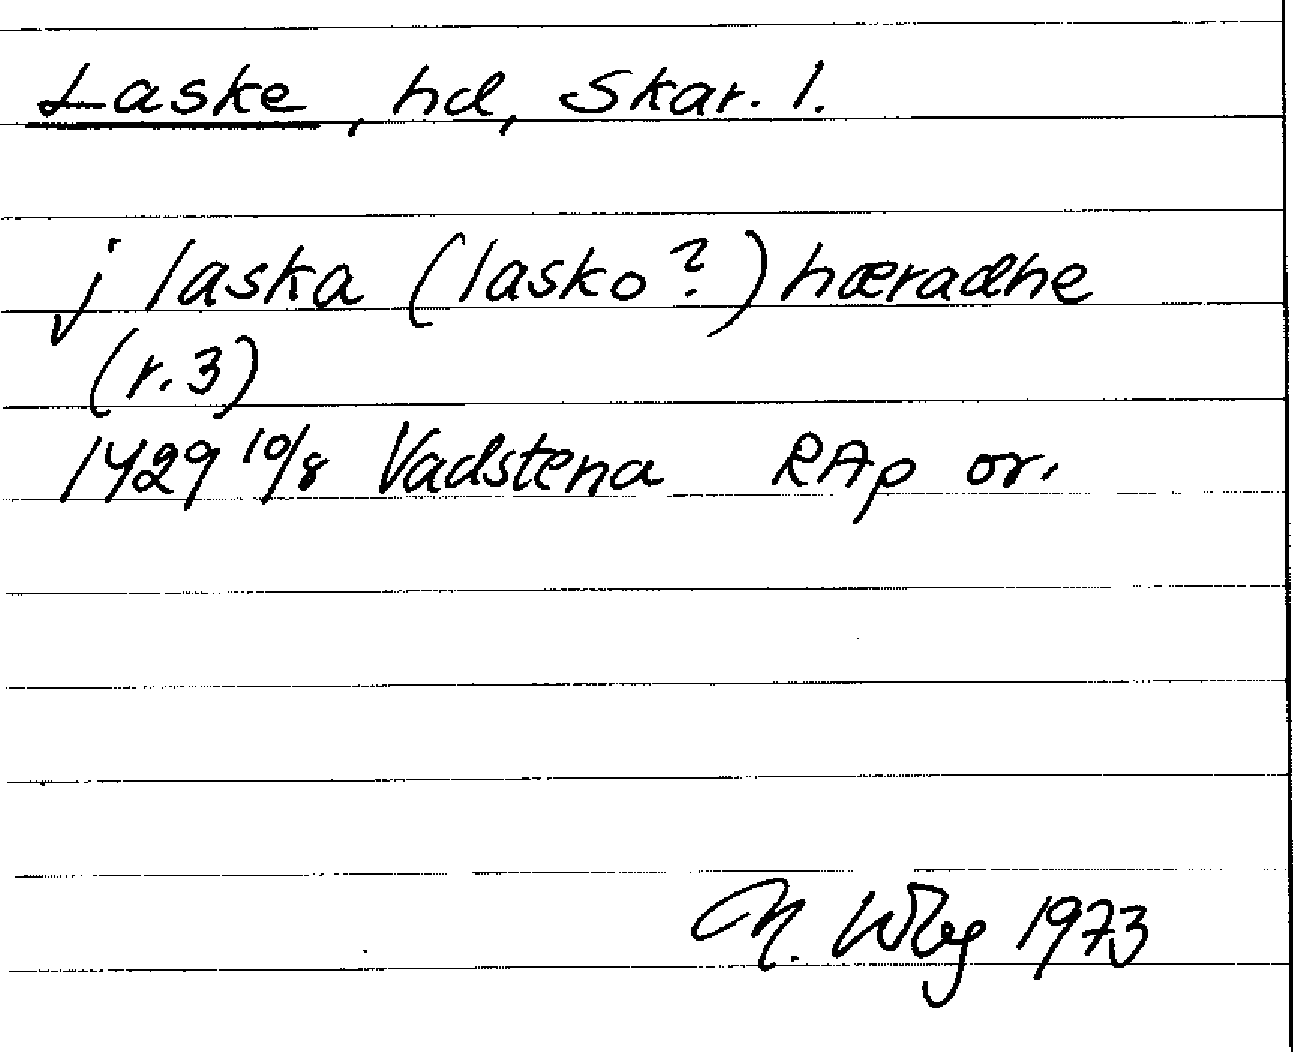 Laske, hd, Skar. l.
j laska (lasko?) hæradhe
(r. 3)
1429 10/8 Vadstena RAp or.
1973